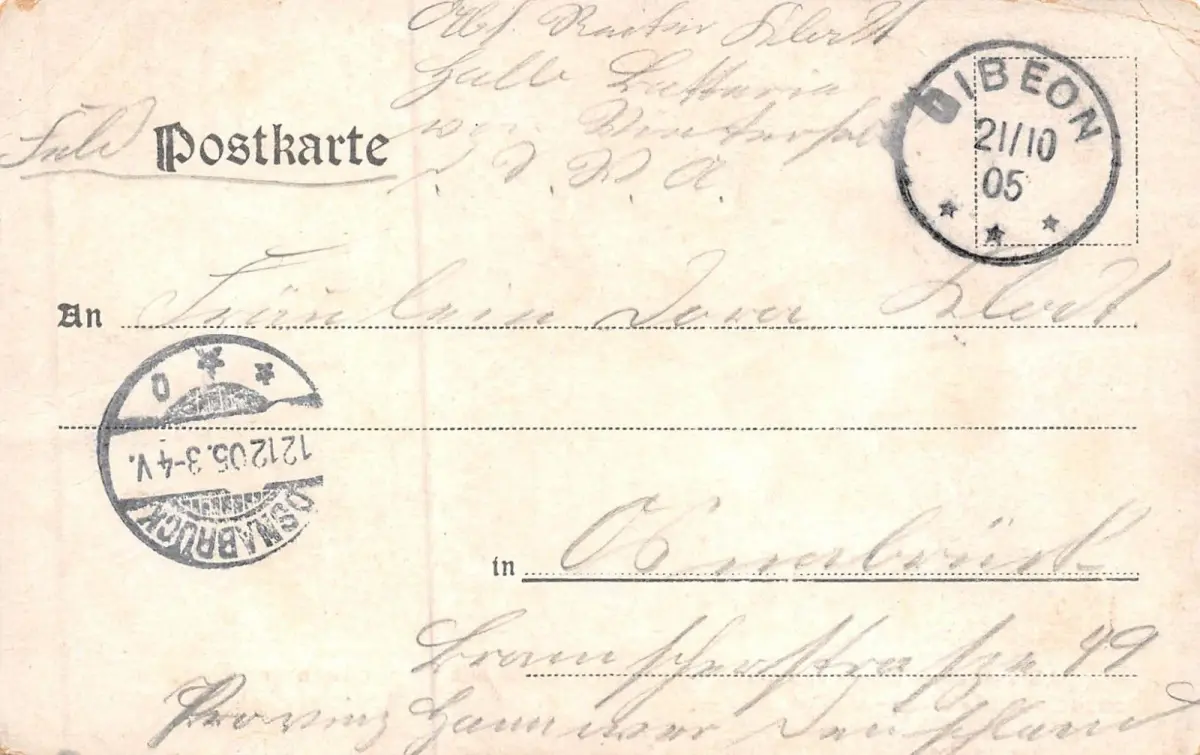 Abs. Reiter Klodt
Halbe Batterie
von
D. S. W. A.
Feld Postkarte
GIBEON
21/10
05
An Fräulein Dora Klodt
12.12.05. 3-4 V.
OSNABRÜCK
in Osnabrück
Bramscherstrasze 49
Provinz Hannover Deutschland